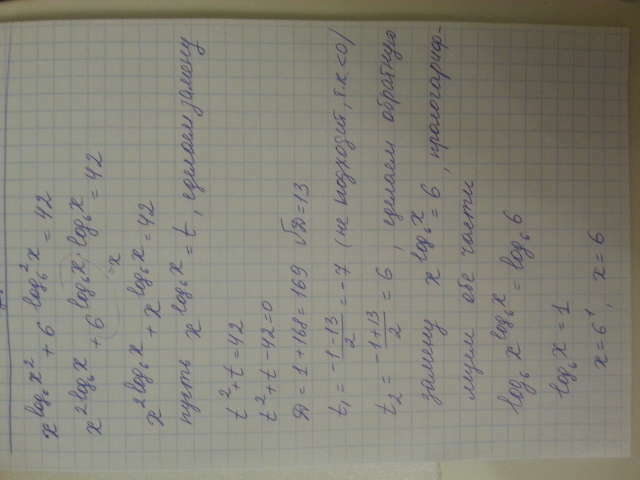 x^{log₆x²} + 6^{log₆²x} = 42
x^{2log₆x} + 6^{log₆x·log₆x} = 42
x
x^{2log₆x} + x^{log₆x} = 42
пусть x^{log₆x} = t, сделаем замену
t² + t = 42
t² + t - 42 = 0
D = 1 + 168 = 169 √D = 13
t₁ = (-1-13)/2 = -7 (не подходит, т.к < 0)
t₂ = (-1+13)/2 = 6, сделаем обратную
замену x^{log₆x} = 6, прологариф-
муем обе части
log₆x^{log₆x} = log₆6
log₆x = 1
x = 6¹, x = 6